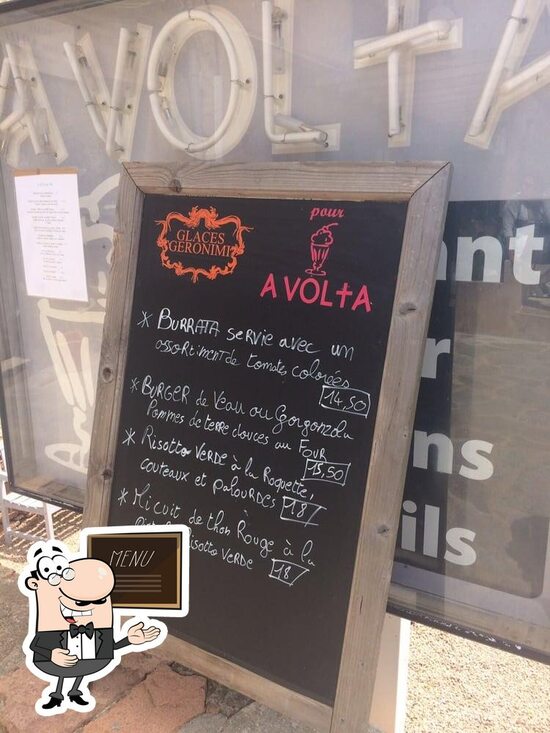 AVOL+A
GLACES
GERONIMI
pour
A VOL+A
* BURRATA servie avec un
assortiment de tomates colorées
14,50
* BURGER de Veau ou Gorgonzola
Pommes de terre douces au Four
15,50
* Risotto VERDE à la Roquette,
couteaux et palourdes 18
* Micuit de thon Rouge à la
Risotto VERDE 18
MENU
ant
r
ns
ils